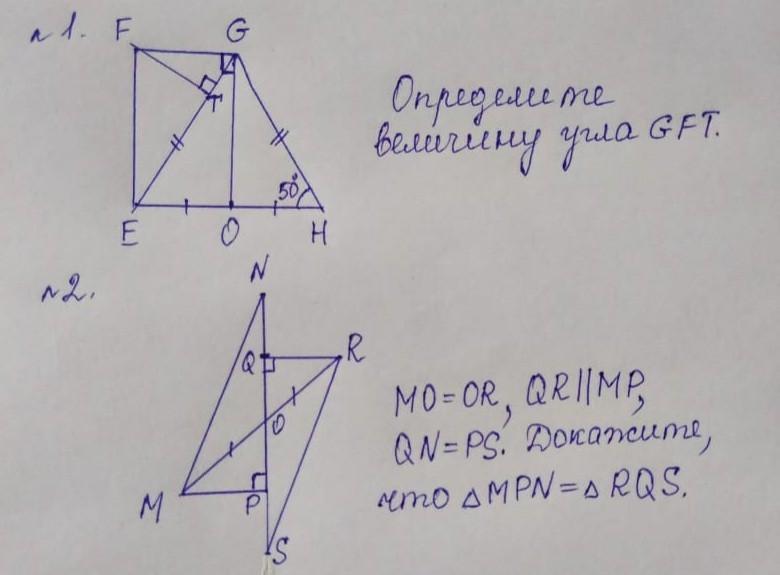 №1. F G
Определите
величину угла GFT.
T
50°
E O H
№2. N
Q R
MO=OR, QR||MP,
O
QN=PS. Докажите,
M P
что △MPN=△RQS.
S